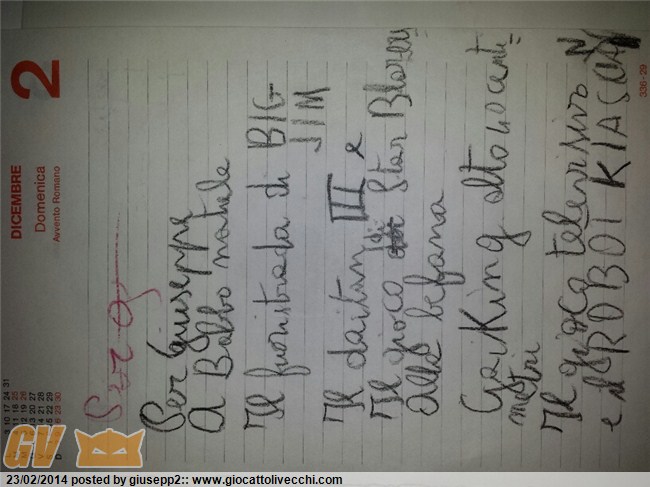 DICEMBRE
2
Domenica
Avvento Romano
336-29
Per Giuseppe
A Babbo natale
Il fuoristrada di BIG
JIM
Il daitan III e
Il gioco di Star Blazers
Alla befana
Gaiking alto 40 centi=
metri
Il gioco televisivo
e il ROBOT KIASAN
GV
23/02/2014 posted by giusepp2:: www.giocattolivecchi.com